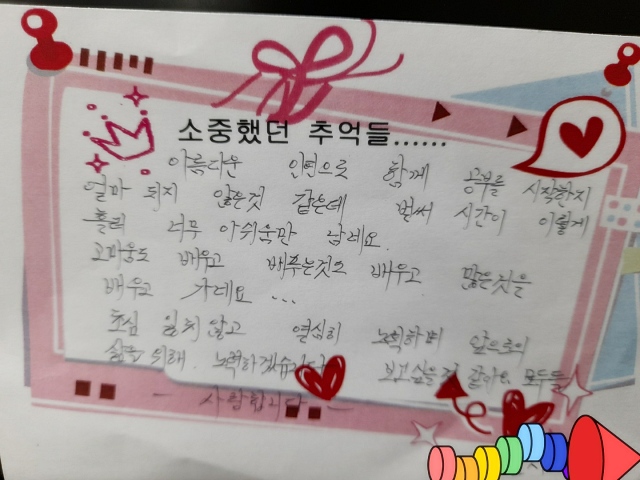 소중했던 추억들......
아름다운 인연으로 함께 공부를 시작한지
얼마 되지 않은것 같은데 벌써 시간이 이렇게
흘러 너무 아쉬움만 남네요.
고마움도 배우고 베푸는것도 배우고 많은것을
배우고 가네요 ...
초심 잃지 않고 열심히 노력하며 앞으로의
삶을 위해 노력하겠습니다 보고싶을것 같아요 모두들
- 사랑합니다 -